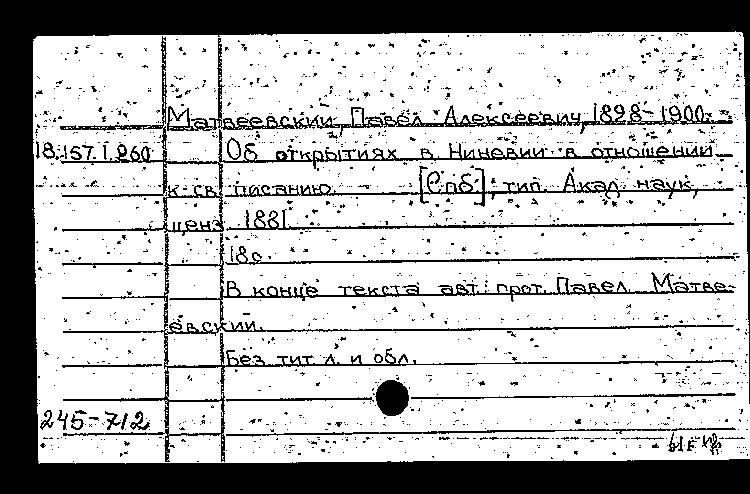 Матвеевский, Павел Алексеевич, 1828-1900.
18.157.1.260 Об открытиях в Ниневии в отношении
к св. писанию. - [Спб], тип. Акад. наук,
ценз. 1881.
18с.
В конце текста авт.: прот. Павел Матве-
евский.
Без тит. л. и обл.
245-712